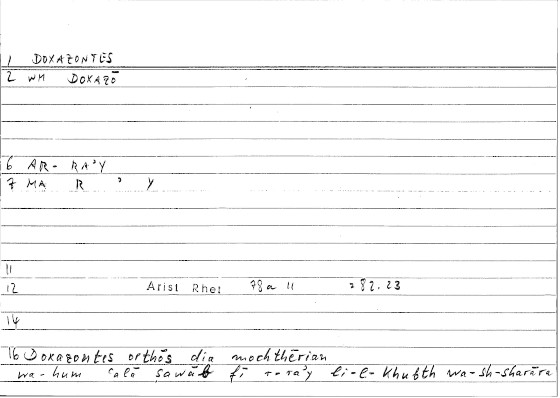 1 DOXAZONTES
2 WM DOXAZŌ
6 AR- RAʾY
7 MA R ʾ Y
11
12 Arist Rhet 78a 11 = 82.23
14
16 Doxazontes orthōs dia mochthērian
wa-hum ʿalā sawāb fī r-raʾy li-l-khubth wa-sh-sharāra